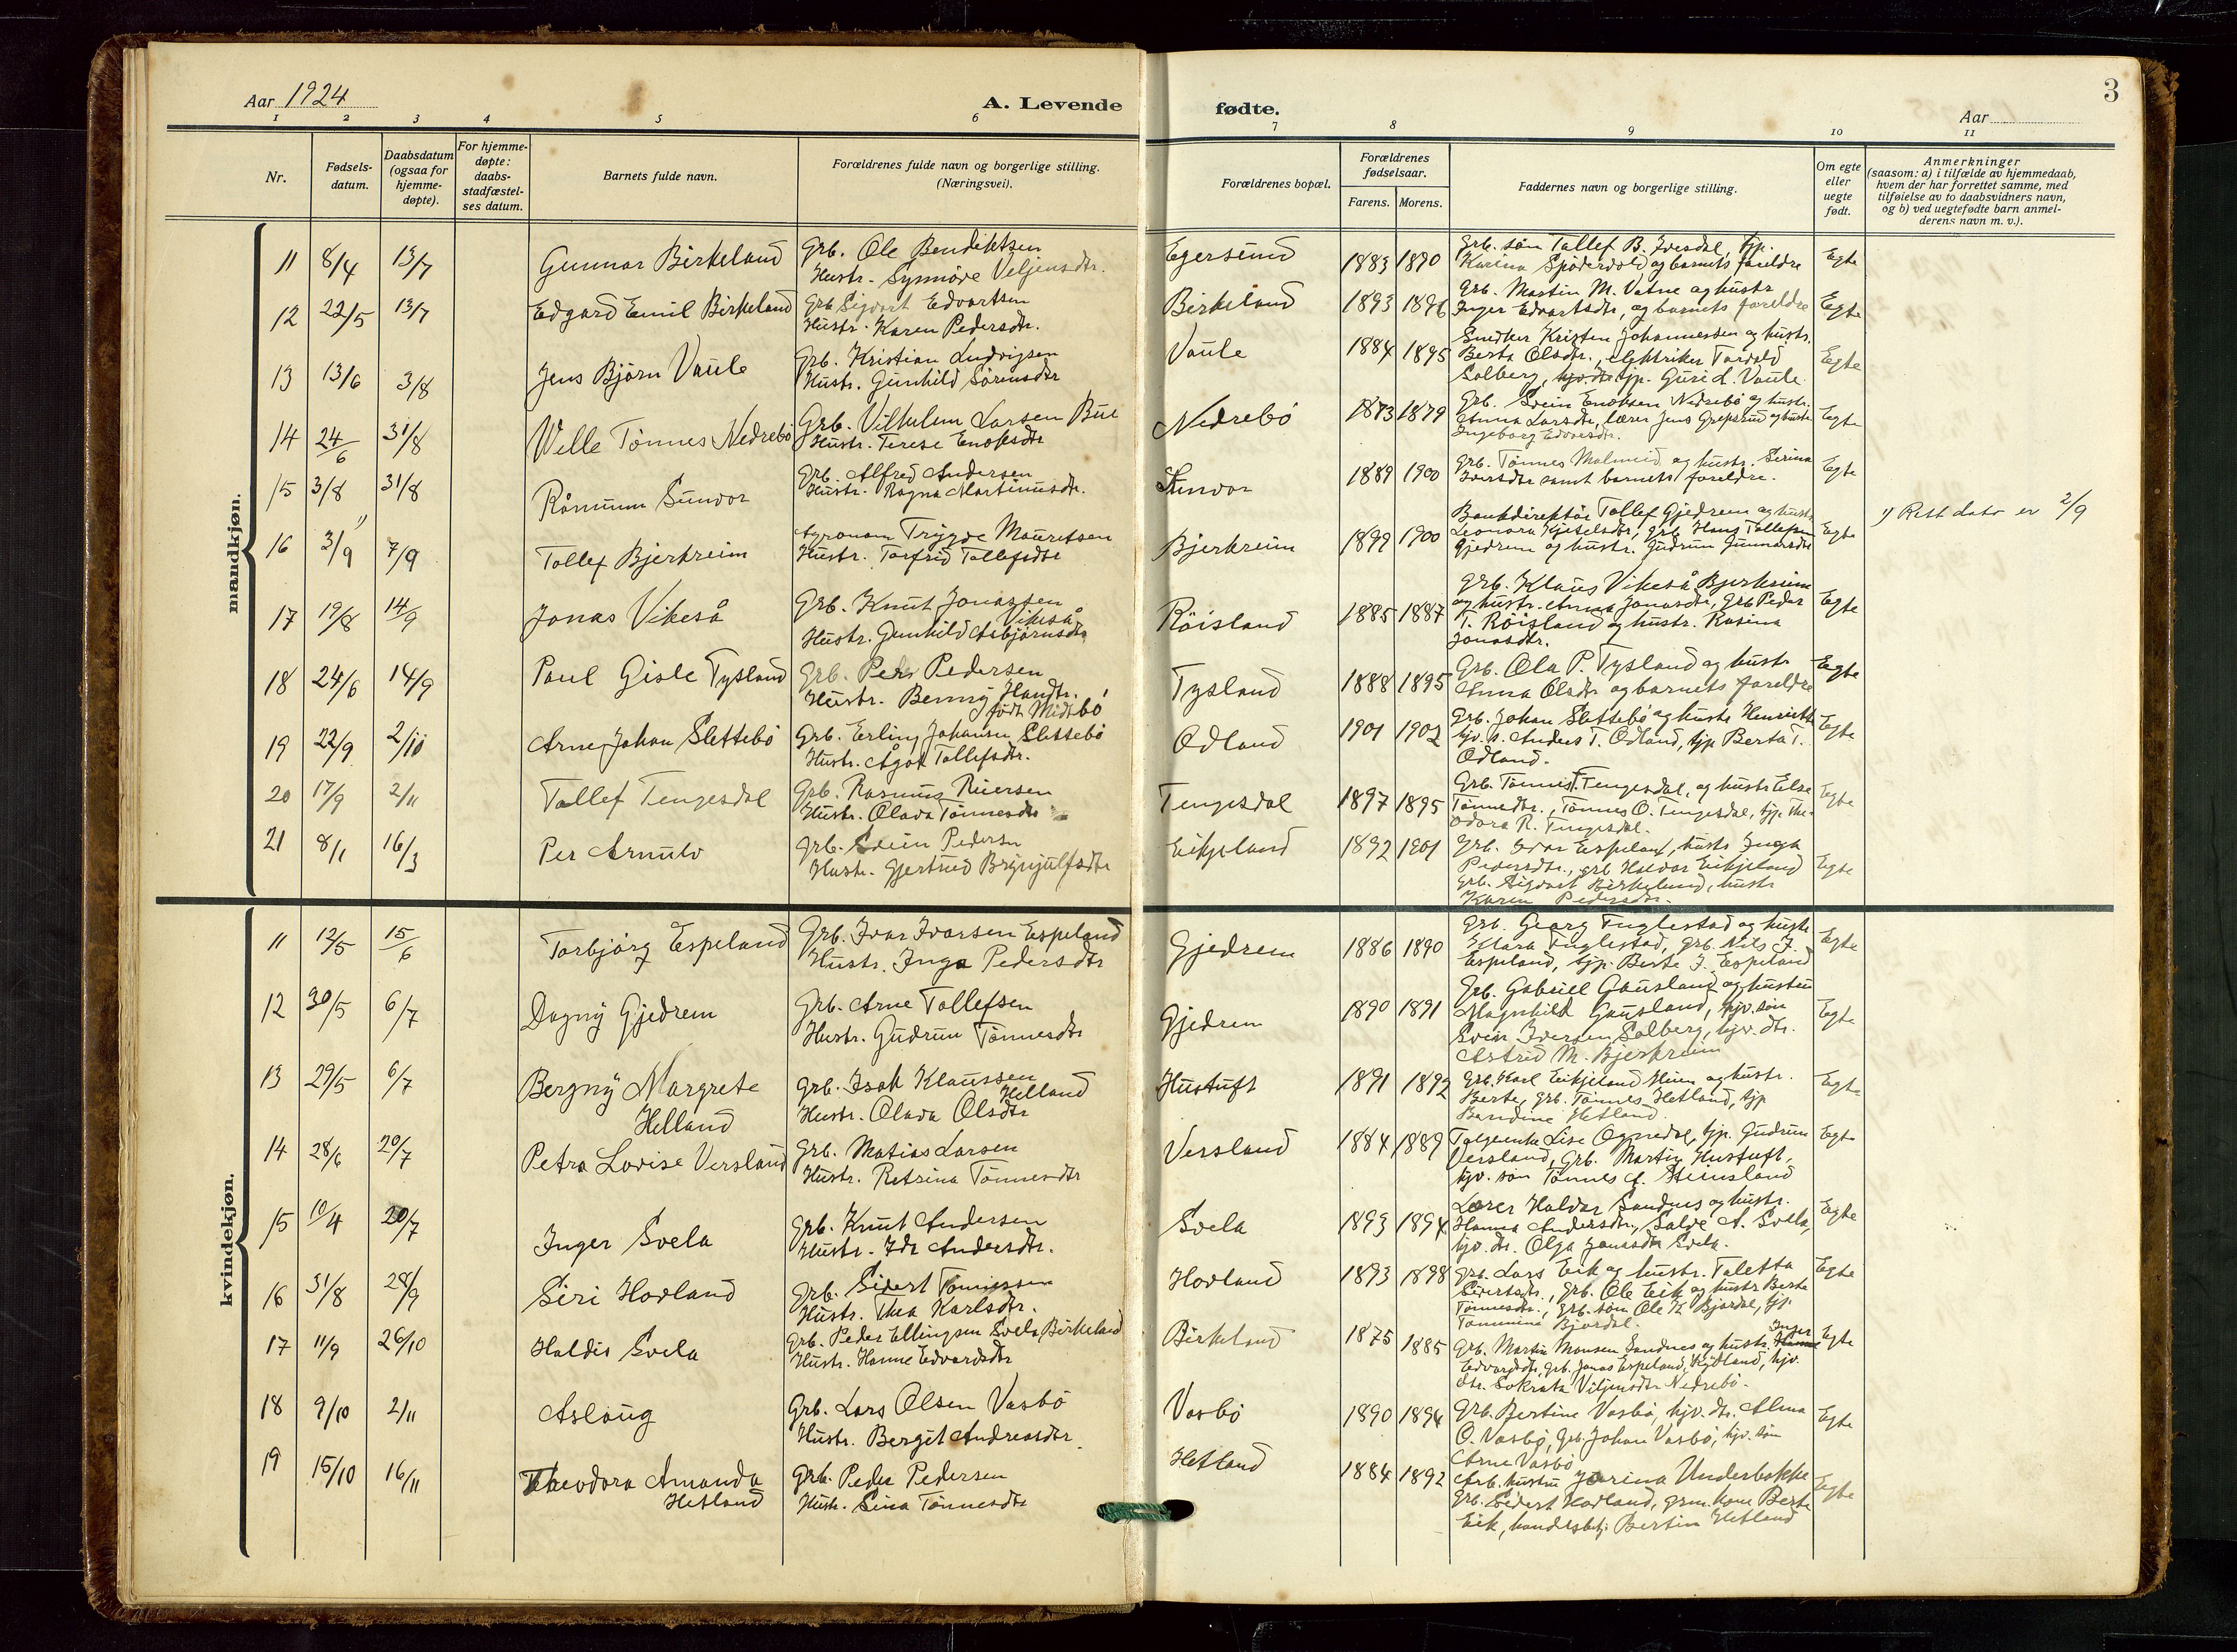 Aar 1924
A. Levende fødte.
Aar
3
1 2 3 4 5 6 7 8 9 10 11
Nr.
Fødsels-
datum.
Daabsdatum
(ogsaa for
hjemme-
døpte).
For hjemme-
døpte:
daabs-
stadfæstel-
ses datum.
Barnets fulde navn.
Forældrenes fulde navn og borgerlige stilling.
(Næringsvei).
Forældrenes bopæl.
Forældrenes
fødselsaar.
Farens. Morens.
Faddernes navn og borgerlige stilling.
Om egte
eller
uegte
født.
Anmerkninger
(saasom: a) i tilfælde av hjemmedaab,
hvem der har forrettet samme, med
tilføielse av to daabsvidners navn,
og b) ved uegtefødte barn anmel-
derens navn m. v.).
mandkjøn.
11 8/4 13/7 Gunnar Birkeland Grb. Ole Bendiktsen
Hustr. Synnøve Veljensdtr. Egersund 1883 1890 Grb. søn Tallef B. Ivesdal, tjp.
Karina og barnets foreldre Egte
12 22/5 13/7 Edgard Emil Birkeland Grb Sigvart Edvartsen
Hustr. Karen Pedersdtr. Birkeland 1893 1896 Grb. Martin M. Vatne og hustr
Inger Edvartsdtr, og barnets foreldre Egte
13 13/6 3/8 Jens Bjørn Vaule Grb. Kristian Ludvigsen
Hustr. Gunhild Sørensdtr Vaule 1884 1895 Smdker Kristen Johannessen og hustr.
Berta Olsdtr., elektriker Tordald
Solberg, tjp. Guri L. Vaule. Egte
14 24/6 31/8 Wille Tønnes Nedrebø Grb. Vilhelm Larsen Bue
Hustr. Terese Enoksdtr Nedrebø 1873 1879 Grb. Svein Enoksen Nedrebø og hustr.
Anna Larsdtr, lærer Jens Grepstad og hustr
Ingeborg Edvarsdtr. Egte
15 3/8 31/8 Råmunn Sunvor Grb. Alfred Andersen
Hustr. Ragna Martinusdtr. Sunvor 1889 1900 Grb. Tønnes Malmeid og hustr. Serina
Iversdtr samt barnets foreldre. Egte
16 3/9 1) 7/9 Tollef Bjerkreim Agronom Trygve Mauritsen
Hustr. Torfrid Tollefsdtr Bjerkreim 1899 1900 Bankdirektør Tollef Gjedrem og hustr
Leonora Kjetelsdtr, Grb. Hans Tollefsen
Gjedrem og hustr. Gudrun Gunnarsdtr Egte 1) Rett dato er 2/9
17 19/8 14/9 Jonas Vikeså Grb. Knut Jonassen
Vikeså
Hustr. Gunhild Asbjørnsdtr Røisland 1885 1887 Grb. Klaus Vikeså Bjerkreim
og hustr. Anna Jonasdtr, Grb Peder
T. Røisland og hustr. Rasina
Jonasdtr. Egte
18 24/6 14/9 Paul Gisle Tysland Grb. Peder Pedersen
Hustr. Benny Hansdtr.
født Midtbø Tysland 1888 1895 Grb. Ola P. Tysland og hustr
Anna Olsdtr og barnets foreldre Egte
19 22/9 2/10 Arne Johan Slettebø Grb. Erling Johansen Slettebø
Hustr. Ågot Tollefsdtr. Odland 1901 1902 Grb. Johan Slettebø og hustr Henriette
hjv. s. Anders T. Odland, tjp Berta T.
Odland. Egte
20 17/9 2/11 Tallef Tengesdal Grb. Rasmus Reiersen
Hustr. Olava Tønnesdtr Tengesdal 1897 1895 Grb. Tønnes T. Tengesdal, og hustr Else
Tønnesdtr., Tønnes O. Tengesdal, tjp. The-
odora R. Tengesdal. Egte
21 8/1 16/3 Per Arnulv Grb. Svein Pedersen
Hustr. Gjertrud Brynjulfsdtr Eikjeland 1892 1901 Grb. Ivar Espeland, hustr Inga
Pedersdtr., grb Halvar Eikjeland
Grb. Sigvart Birkeland, hustr
Karen Pedersdtr. Egte
kvindekjøn.
11 12/5 15/6 Torbjørg Espeland Grb. Ivar Ivarsen Espeland
Hustr. Inga Pedersdtr Gjedrem 1886 1890 Grb. Georg Fuglestad og hustr
Klara Fuglestad, Grb. Nils I.
Espeland, tjp. Berte I. Espeland Egte
12 30/5 6/7 Dagny Gjedrem Grb. Arne Tollefsen
Hustr. Gudrun Tønnesdtr Gjedrem 1890 1891 Grb. Gabriel Gausland og hustru
Magnhild Gausland, hjv. søn
Svein Iversen Solberg, hjv. dtr.
Astrid M. Bjerkreim Egte
13 29/5 6/7 Bergny Margrete
Helland Grb. Isak Klaussen
Helland
Hustr. Olava Olsdtr Hustuft 1891 1892 Grb. Karl Eikjeland Huen og hustr.
Berte, Grb. Tønnes Hetland, tjp
Bardine Hetland. Egte
14 28/6 20/7 Petra Lovise Versland Grb. Matias Larsen
Hustr. Petrina Tønnesdtr Versland 1884 1889 Lise Ognedal, tjp. Gudrun
Versland, Grb. Martin Hustuft,
hjv. søn Tønnes A. Steinsland Egte
15 10/4 20/7 Inger Svela Grb. Knut Andersen
Hustr. Ida Andersdtr. Svela 1893 1894 Lærer Haldor Sandnes og hustr.
Hanna Andersdtr, Salve A. Svela,
hjv. dtr. Olga Jonasdtr Svela. Egte
16 31/8 28/9 Siri Hovland Grb. Sivert Tønnessen
Hustr. Thea Karlsdtr. Hovland 1893 1898 Grb. Lars Eik og hustr. Taletta
Sivertsdtr., Grb. Ole Eik og hustr Berte
Tønnesdtr., Grb. søn Ole K. Bjordal, tjp.
Tommine Bjordal. Egte
17 11/9 26/10 Haldis Svela Grb. Peder Ellingsen Svela, Birkeland
Hustr. Hanne Edvardsdtr Birkeland 1875 1885 Grb. Martin Monsen Sandnes og hustr. Inger
Edvardsdtr, Grb. Jonas Espeland, Rydland, hjv.
dtr. Sokrata Viljensdtr Nedrebø. Egte
18 9/10 2/11 Aslaug Grb. Lars Olsen Vasbø
Hustr. Bergit Andreasdtr. Vasbø 1890 1894 Grb. Bertine Vasbø, hjv. dtr. Alma
O. Vasbø, Grb. Johan Vasbø, hjv. søn
Arne Vasbø Egte
19 15/10 16/11 Theodora Amanda
Hetland Grb. Peder Pedersen
Hustr. Sina Tønnesdtr Hetland 1884 1892 Arb. hustru Underbakke
Grb. Sivert Hovland, grm. kone Berte
Eik, handelsbetj. Bertin Hetland Egte